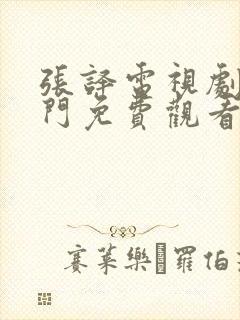 張譯電視劇
門免費觀看
賽萊樂 羅伯